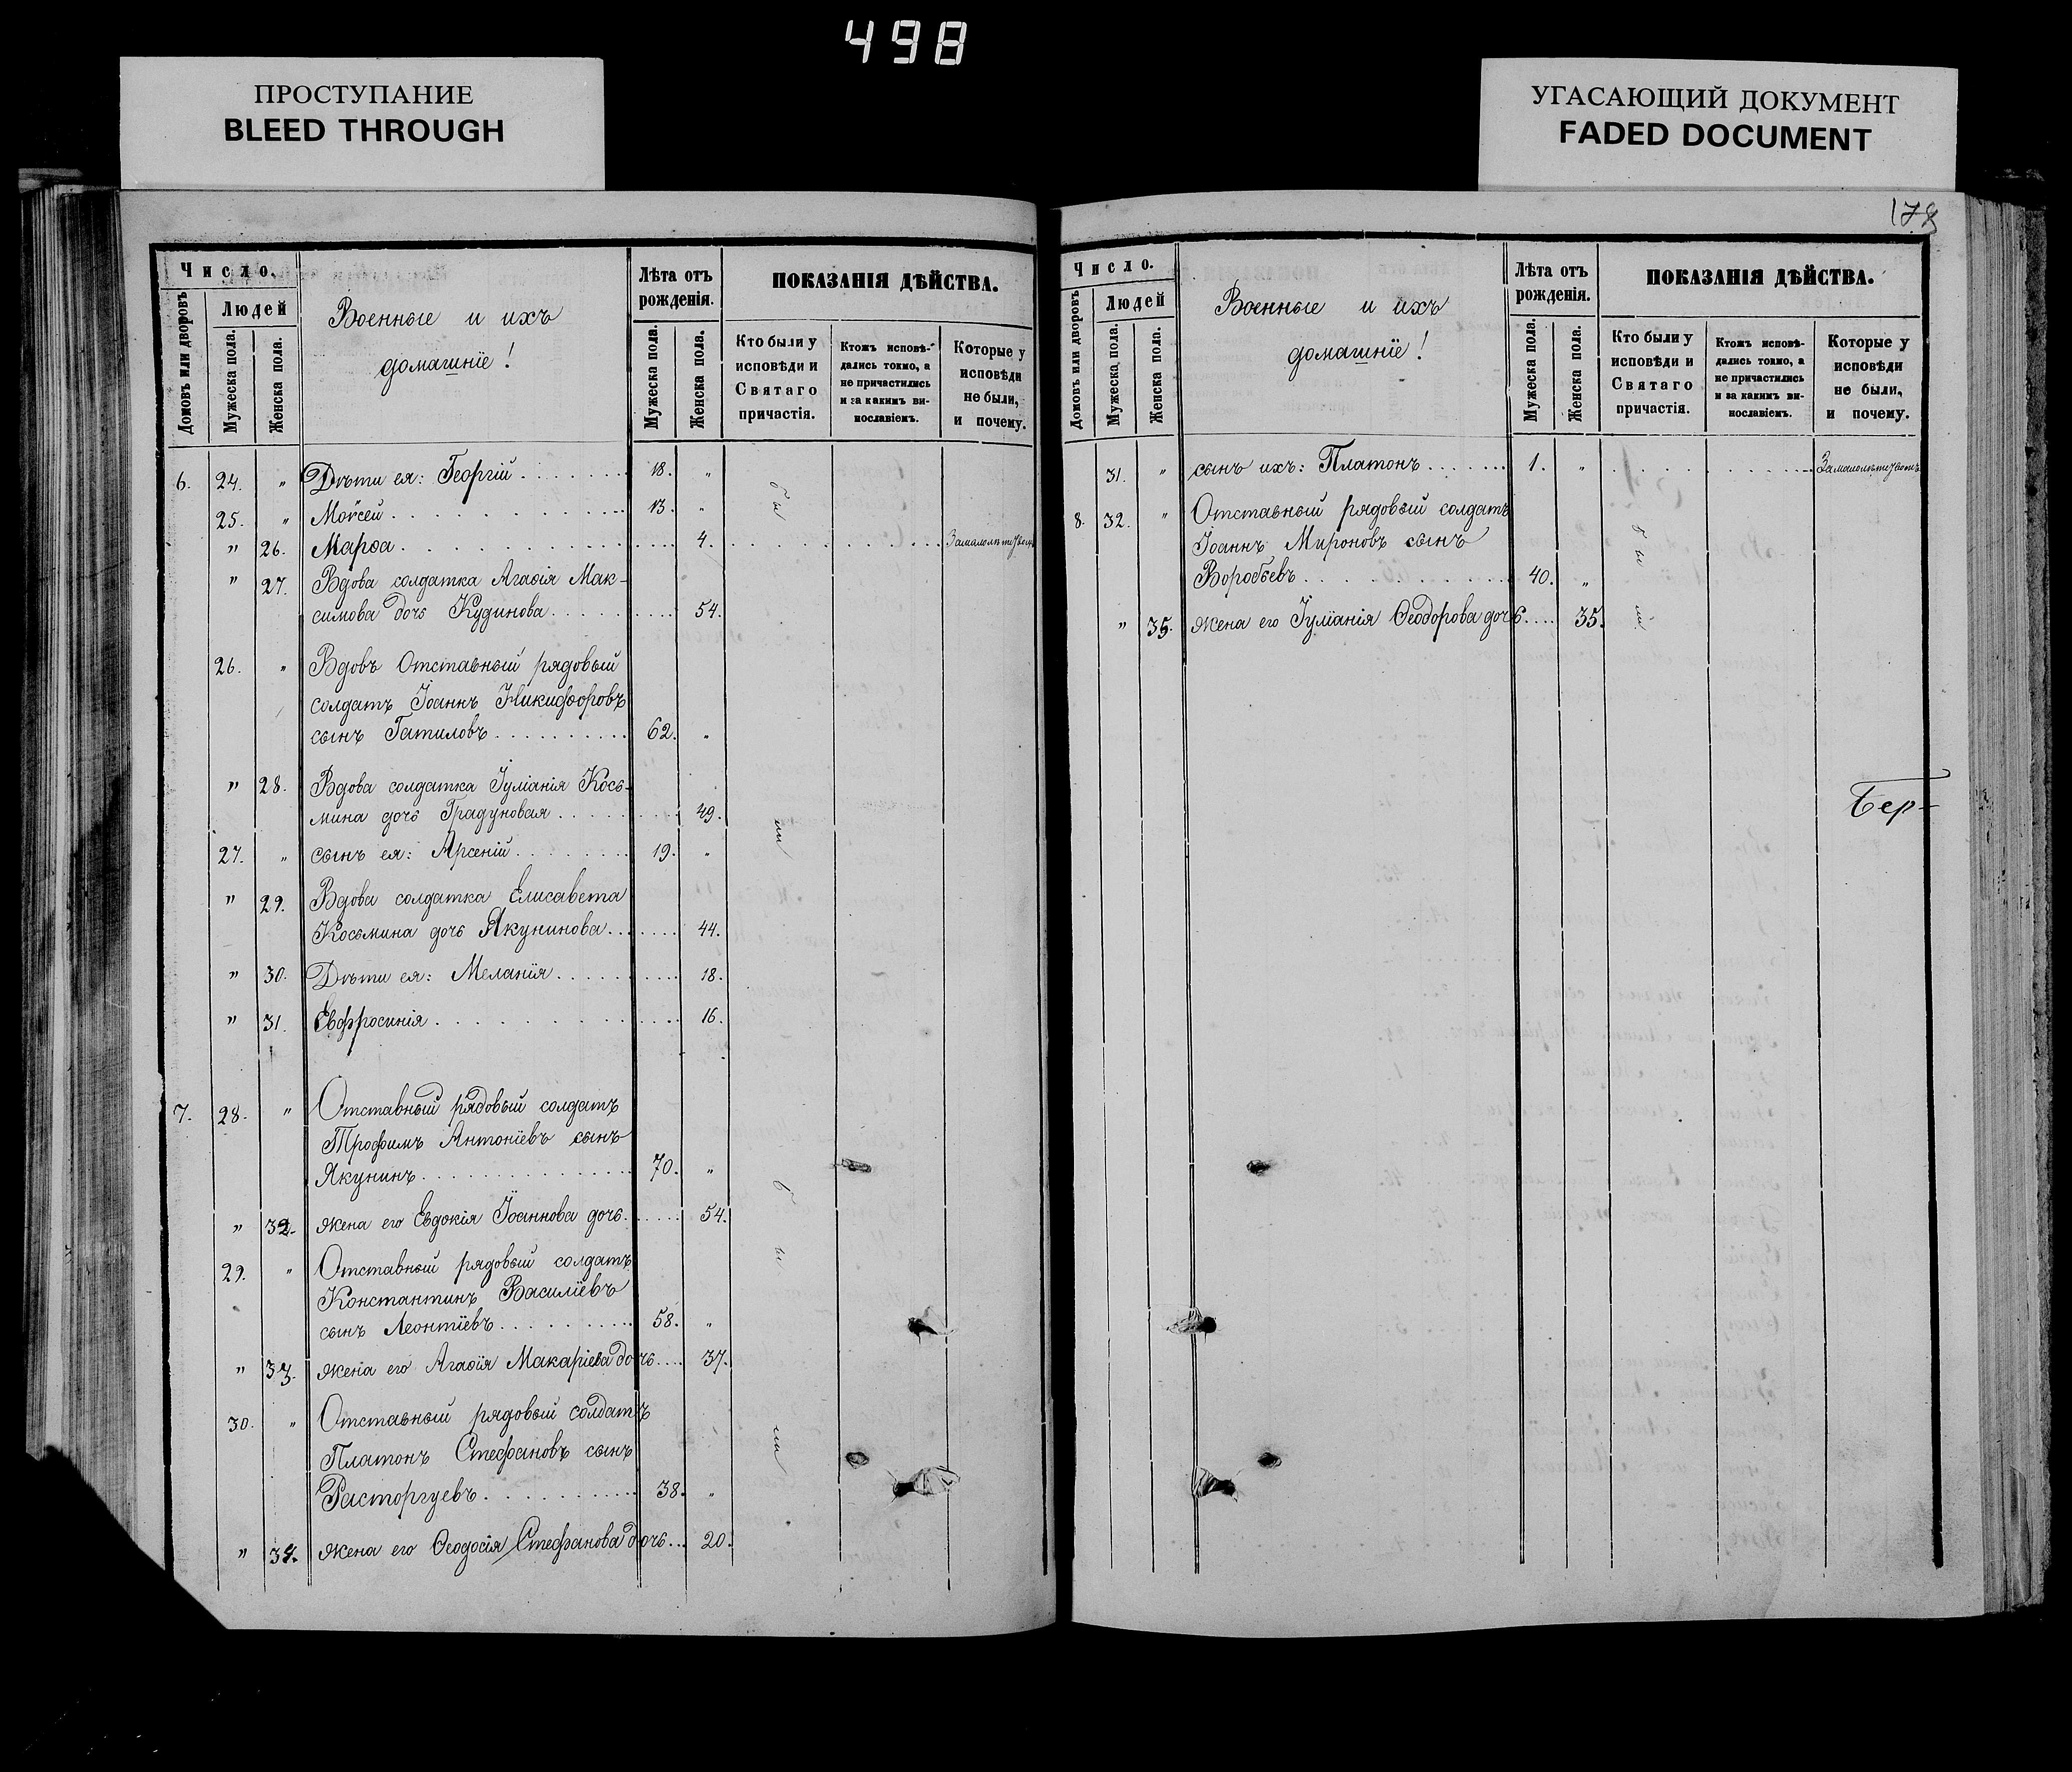 498
ПРОСТУПАНИЕ
BLEED THROUGH
УГАСАЮЩИЙ ДОКУМЕНТ
FADED DOCUMENT
Число.
Домовъ или дворовъ
Людей
Мужеска пола.
Женска пола.
Военные и ихъ
домашніе!
Лѣта отъ
рожденія.
Мужеска пола.
Женска пола.
ПОКАЗАНІЯ ДѢЙСТВА.
Кто были у
исповѣди и
Святаго
причастія.
Ктожъ исповѣ-
дались токмо, а
не причастились
и за какимъ ви-
нословіемъ.
Которые у
исповѣди
не были,
и почему.
6. 24. " Дѣти ея: Георгій . . . . . . . 18. "
25. " Мойсей . . . . . . . . . . . 13. "
" 26. Марѳа . . . . . . . . . . . . 4. . . . . . . . . . . . Замалолѣтствомъ
" 27. Вдова солдатка Агаѳія Мак-
симова дочь Кудинова . . . . . . . . 54.
26. " Вдовъ Отставный рядовый
солдатъ Іоаннъ Никифоровъ
сынъ Гатиловъ . . . . . . . . . . 62. "
" 28. Вдова солдатка Іуліанія Кось-
мина дочь Градуновая . . . . . . . . 49.
27. " сынъ ея: Арсеній . . . . . . . 19. "
" 29. Вдова солдатка Елисавета
Косьмина дочь Якунинова . . . . . . . 44.
" 30. Дѣти ея: Меланія . . . . . . . . . 18.
" 31. Евфросинія . . . . . . . . . . . . 16.
7. 28. " Отставный рядовый солдатъ
Трофимъ Антоніевъ сынъ
Якунинъ . . . . . . . . . . . . . . 70. "
" 32. жена его Евдокія Іоаннова дочь . . . . . 54.
29. " Отставный рядовый солдатъ
Константинъ Василіевъ
сынъ Леонтіевъ . . . . . . . . . . 58. "
" 33. жена его Агаѳія Макаріева дочь . . . . 37.
30. " Отставный рядовый солдатъ
Платонъ Стефановъ сынъ
Расторгуевъ . . . . . . . . . . . 38. "
" 34. жена его Ѳеодосія Стефанова дочь . . . 20.
бы
ли
бы
ли
178
Число.
Домовъ или дворовъ
Людей
Мужеска пола.
Женска пола.
Военные и ихъ
домашніе!
Лѣта отъ
рожденія.
Мужеска пола.
Женска пола.
ПОКАЗАНІЯ ДѢЙСТВА.
Кто были у
исповѣди и
Святаго
причастія.
Ктожъ исповѣ-
дались токмо, а
не причастились
и за какимъ ви-
нословіемъ.
Которые у
исповѣди
не были,
и почему.
31. " сынъ ихъ: Платонъ . . . . . . . 1. " . . . . . . . . . . . Замалолѣтствомъ
8. 32. " Отставный рядовый солдатъ
Іоаннъ Мироновъ сынъ
Воробьевъ . . . . . . . . . . . 40. "
" 35. жена его Іуліанія Ѳеодорова дочь . . . . 35.
бы
ли
Бер-